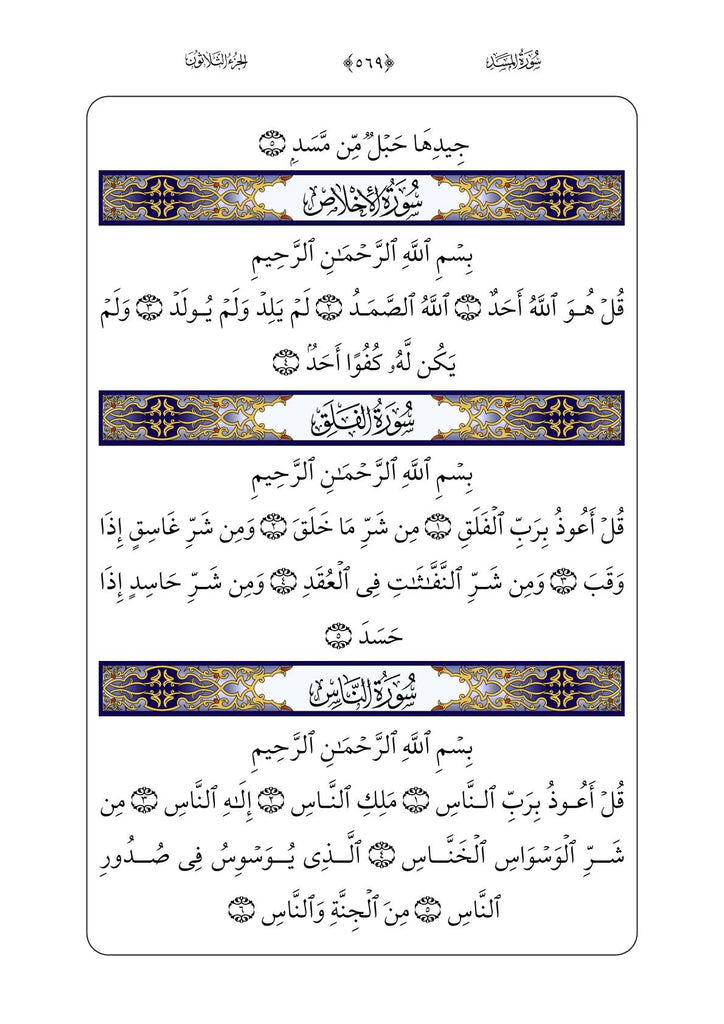 سُورَةُ المَسَدِ ﴿٥٦٩﴾ الجُزءُ الثَّلاثُونَ
جِيدِهَا حَبۡلٞ مِّن مَّسَدِۭ ۝٥
سُورَةُ الإِخۡلَاصِ
بِسۡمِ ٱللَّهِ ٱلرَّحۡمَٰنِ ٱلرَّحِيمِ
قُلۡ هُوَ ٱللَّهُ أَحَدٌ ۝١ ٱللَّهُ ٱلصَّمَدُ ۝٢ لَمۡ يَلِدۡ وَلَمۡ يُولَدۡ ۝٣ وَلَمۡ
يَكُن لَّهُۥ كُفُوًا أَحَدُۢ ۝٤
سُورَةُ الفَلَقِ
بِسۡمِ ٱللَّهِ ٱلرَّحۡمَٰنِ ٱلرَّحِيمِ
قُلۡ أَعُوذُ بِرَبِّ ٱلۡفَلَقِ ۝١ مِن شَرِّ مَا خَلَقَ ۝٢ وَمِن شَرِّ غَاسِقٍ إِذَا
وَقَبَ ۝٣ وَمِن شَرِّ ٱلنَّفَّٰثَٰتِ فِى ٱلۡعُقَدِ ۝٤ وَمِن شَرِّ حَاسِدٍ إِذَا
حَسَدَ ۝٥
سُورَةُ النَّاسِ
بِسۡمِ ٱللَّهِ ٱلرَّحۡمَٰنِ ٱلرَّحِيمِ
قُلۡ أَعُوذُ بِرَبِّ ٱلنَّاسِ ۝١ مَلِكِ ٱلنَّاسِ ۝٢ إِلَٰهِ ٱلنَّاسِ ۝٣ مِن
شَرِّ ٱلۡوَسۡوَاسِ ٱلۡخَنَّاسِ ۝٤ ٱلَّذِى يُوَسۡوِسُ فِى صُدُورِ
ٱلنَّاسِ ۝٥ مِنَ ٱلۡجِنَّةِ وَٱلنَّاسِ ۝٦